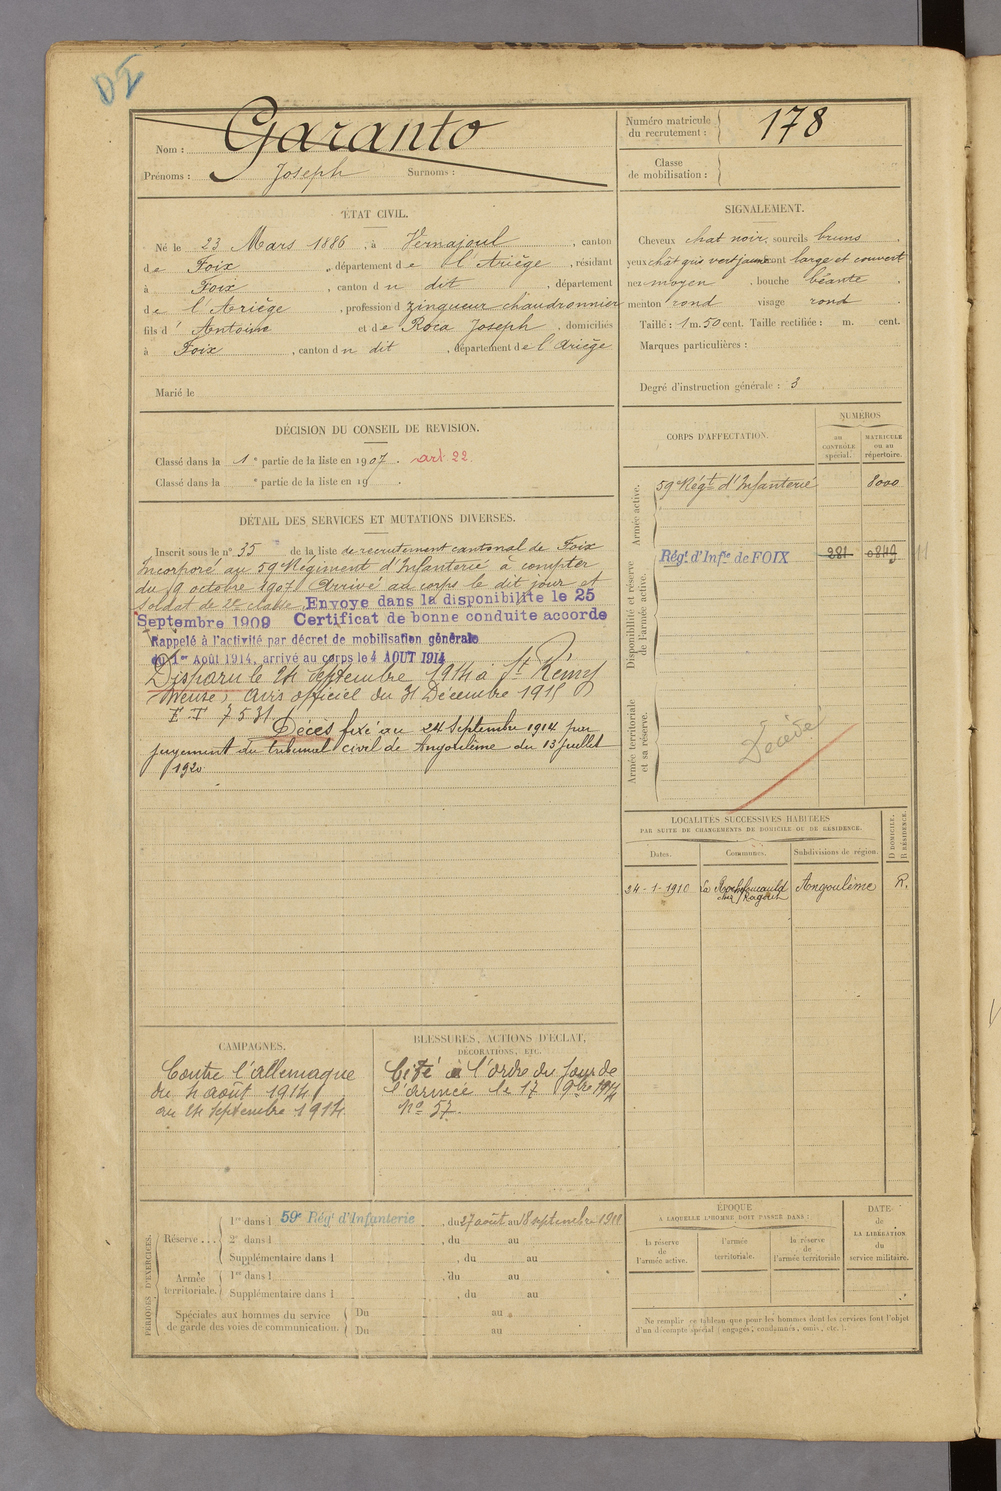 DI
Nom : Garanto
Prénoms : Joseph Surnoms :
Numéro matricule du recrutement : 178
Classe de mobilisation :
ÉTAT CIVIL.
Né le 23 Mars 1886, à Vernajoul, canton
de Foix, département de l'Ariège, résidant
à Foix, canton du dit, département
de l'Ariège, profession d zingueur chaudronnier
fils d'Antoine et de Roca Joseph, domiciliés
à Foix, canton du dit, département de l'Ariège
Marié le
SIGNALEMENT.
Cheveux chat noir, sourcils bruns
yeux chât gris vert jaune front large et couvert
nez moyen, bouche béante
menton rond visage rond
Taille : 1 m. 50 cent. Taille rectifiée : m. cent.
Marques particulières :
Degré d'instruction générale : 3
DÉCISION DU CONSEIL DE REVISION.
Classé dans la 1e partie de la liste en 1907. art 22.
Classé dans la e partie de la liste en 19 .
DÉTAIL DES SERVICES ET MUTATIONS DIVERSES.
Inscrit sous le n° 35 de la liste de recrutement cantonal de Foix
Incorporé au 59e Régiment d'Infanterie à compter
du 9 octobre 1907 Arrivé au corps le dit jour et
soldat de 2e classe. Envoye dans la disponibilite le 25
Septembre 1909 Certificat de bonne conduite accorde
Rappelé à l'activité par décret de mobilisation générale
du 1er Août 1914, arrivé au corps le 4 AOUT 1914
Disparu le 24 Septembre 1914 à St Rémy
(Meuse) Avis officiel du 31 Décembre 1915
F.T 7531.
Décès fixé au 24 Septembre 1914 par
jugement du tribunal civil de Angoulème du 13 juillet
1920
CORPS D'AFFECTATION.
NUMÉROS
au CONTRÔLE spécial.
MATRICULE ou au répertoire.
Armée active.
59e Régt d'Infanterie 8000
Disponibilité et réserve de l'armée active.
Régt d'Infie de FOIX 281 0849 11
Armée territoriale et sa réserve.
Décédé
LOCALITÉS SUCCESSIVES HABITÉES
PAR SUITE DE CHANGEMENTS DE DOMICILE OU DE RÉSIDENCE.
Dates. Communes. Subdivisions de région. D DOMICILE, R RÉSIDENCE.
24-1-1910 La Rochefoucauld Angoulème R.
CAMPAGNES.
Contre l'allemagne
du 4 août 1914
au 24 septembre 1914
BLESSURES, ACTIONS D'ÉCLAT,
DÉCORATIONS, ETC.
Cité à l'ordre du jour de
l'armée le 17 9bre 1914
No 57.
PÉRIODES D'EXERCICES.
Réserve . . .
1re dans l 59e Régt d'Infanterie, du 27 août au 18 septembre 1911
2e dans l , du au
Supplémentaire dans l , du au
Armée territoriale.
1re dans l , du au
Supplémentaire dans l , du au
Spéciales aux hommes du service
de garde des voies de communication.
Du au
Du au
ÉPOQUE
À LAQUELLE L'HOMME DOIT PASSER DANS :
la réserve de l'armée active.
l'armée territoriale.
la réserve de l'armée territoriale
DATE de LA LIBÉRATION du service militaire.
Ne remplir ce tableau que pour les hommes dont les services font l'objet
d'un décompte spécial (engagés, condamnés, omis, etc.).